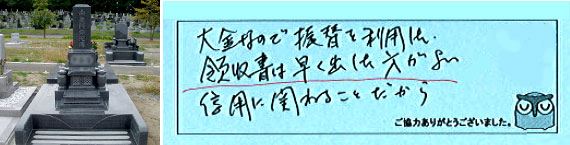 大金なので振替を利用した.
領収書は早く出した方がよい
信用に関わることだから
ご協力ありがとうございました。